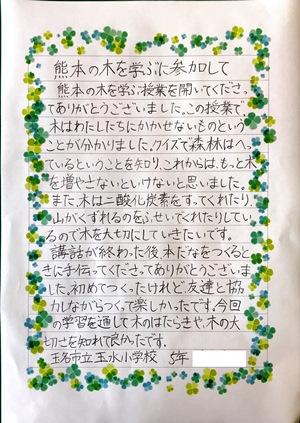 熊本の木を学ぶに参加して
熊本の木を学ぶ授業を開いてくださっ
てありがとうございました。この授業で
木はわたしたちにかかせないものという
ことが分かりました。クイズで森林はへっ
ているということを知り、これからは、もっと木
を増やさないといけないと思いました。
また、木は二酸化炭素をすってくれたり、
山がくずれるのをふせいでくれたりしてい
るので木を大切にしていきたいです。
講話が終わった後、本だなをつくると
きに手伝ってくださってありがとうございま
した。初めてつくったけれど友達と協
力しながらつくって楽しかったです。今回
の学習を通して木のはたらきや、木の大
切さを知れて良かったです。
玉名市立玉水小学校 5年